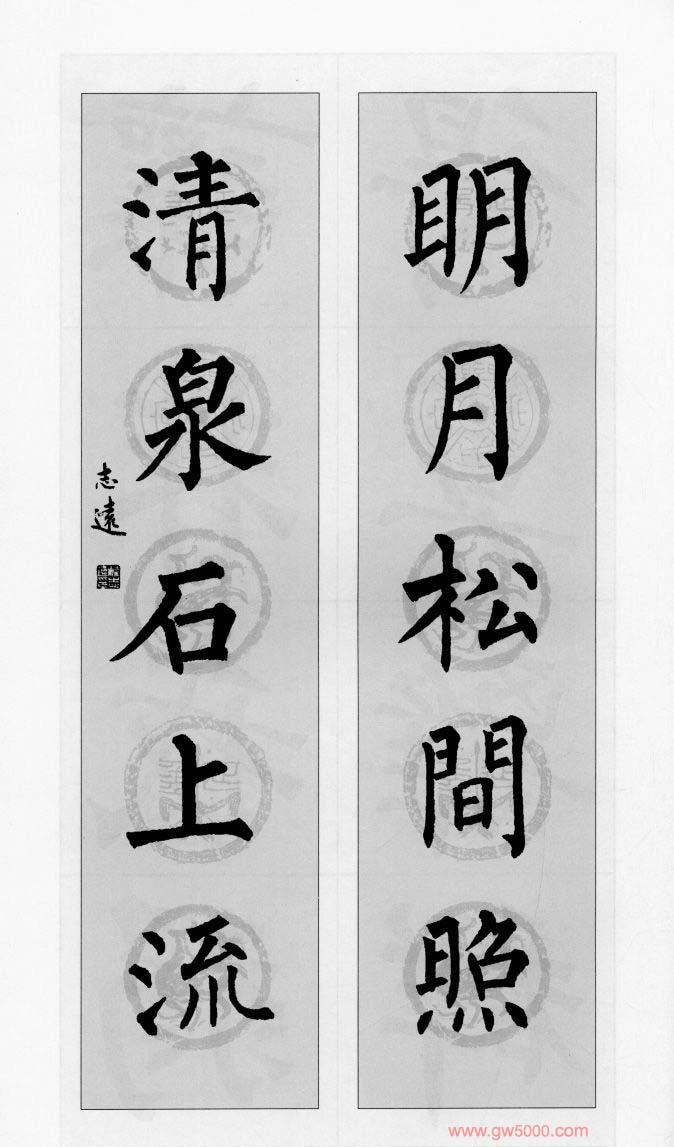 明月松間照
清泉石上流
志遠
www.gw5000.com